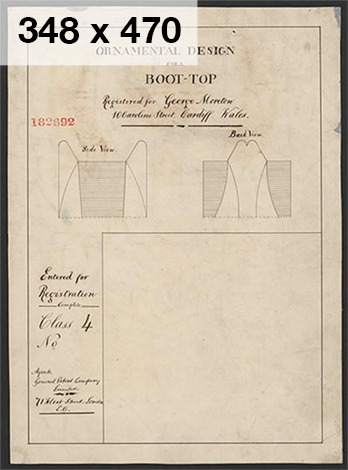 348 x 470
ORNAMENTAL DESIGN
FOR A
BOOT-TOP
Registered for George Moreton
16 Caroline Street, Cardiff Wales.
182892
Side View
Back View
Entered for
Registration
Complete
Class 4
No
Agents
General Patent Company
Limited
71 Fleet Street, London
E.C.